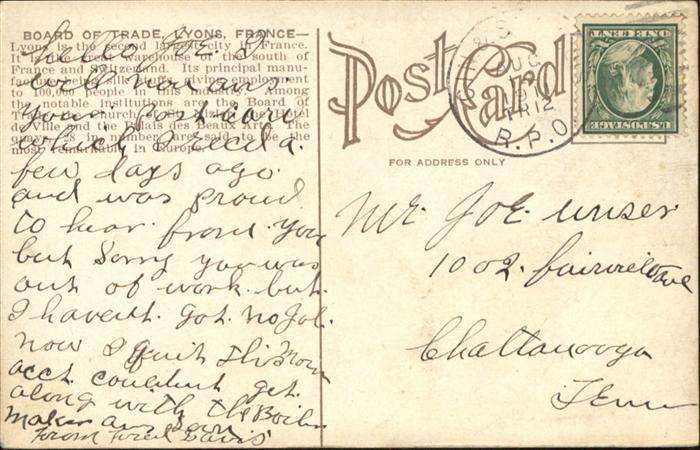 BOARD OF TRADE, LYONS, FRANCE—
Lyons is the second largest city in France.
It is the great warehouse of the south of
France and Switzerland. Its principal manu-
employment
to people in this industry. Among
the notable institutions are the Board of
Hotel
de Ville and the Palais des Beaux Arts. The
are said to be the
most remarkable in Europe.
hello Joe. I
will
your Post card
which I Recd a.
few days ago.
and was proud
to hear from you
but Sorry you was
out of work. but.
I havent. got. no Job.
now I quit
acct. couldent get.
along with the Boiler
maker
From Fred Davis
Post Card
FOR ADDRESS ONLY
AUG
R.P.O.
U.S. POSTAGE
ONE CENT
Mr. Joe unser
1002. fairview ave
Chattanooga
Tenn